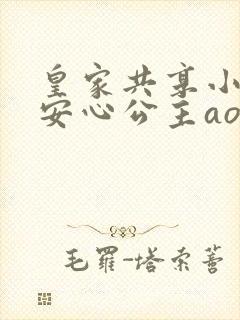 皇家共享小
安心公主ao
毛罗-塔索蒈